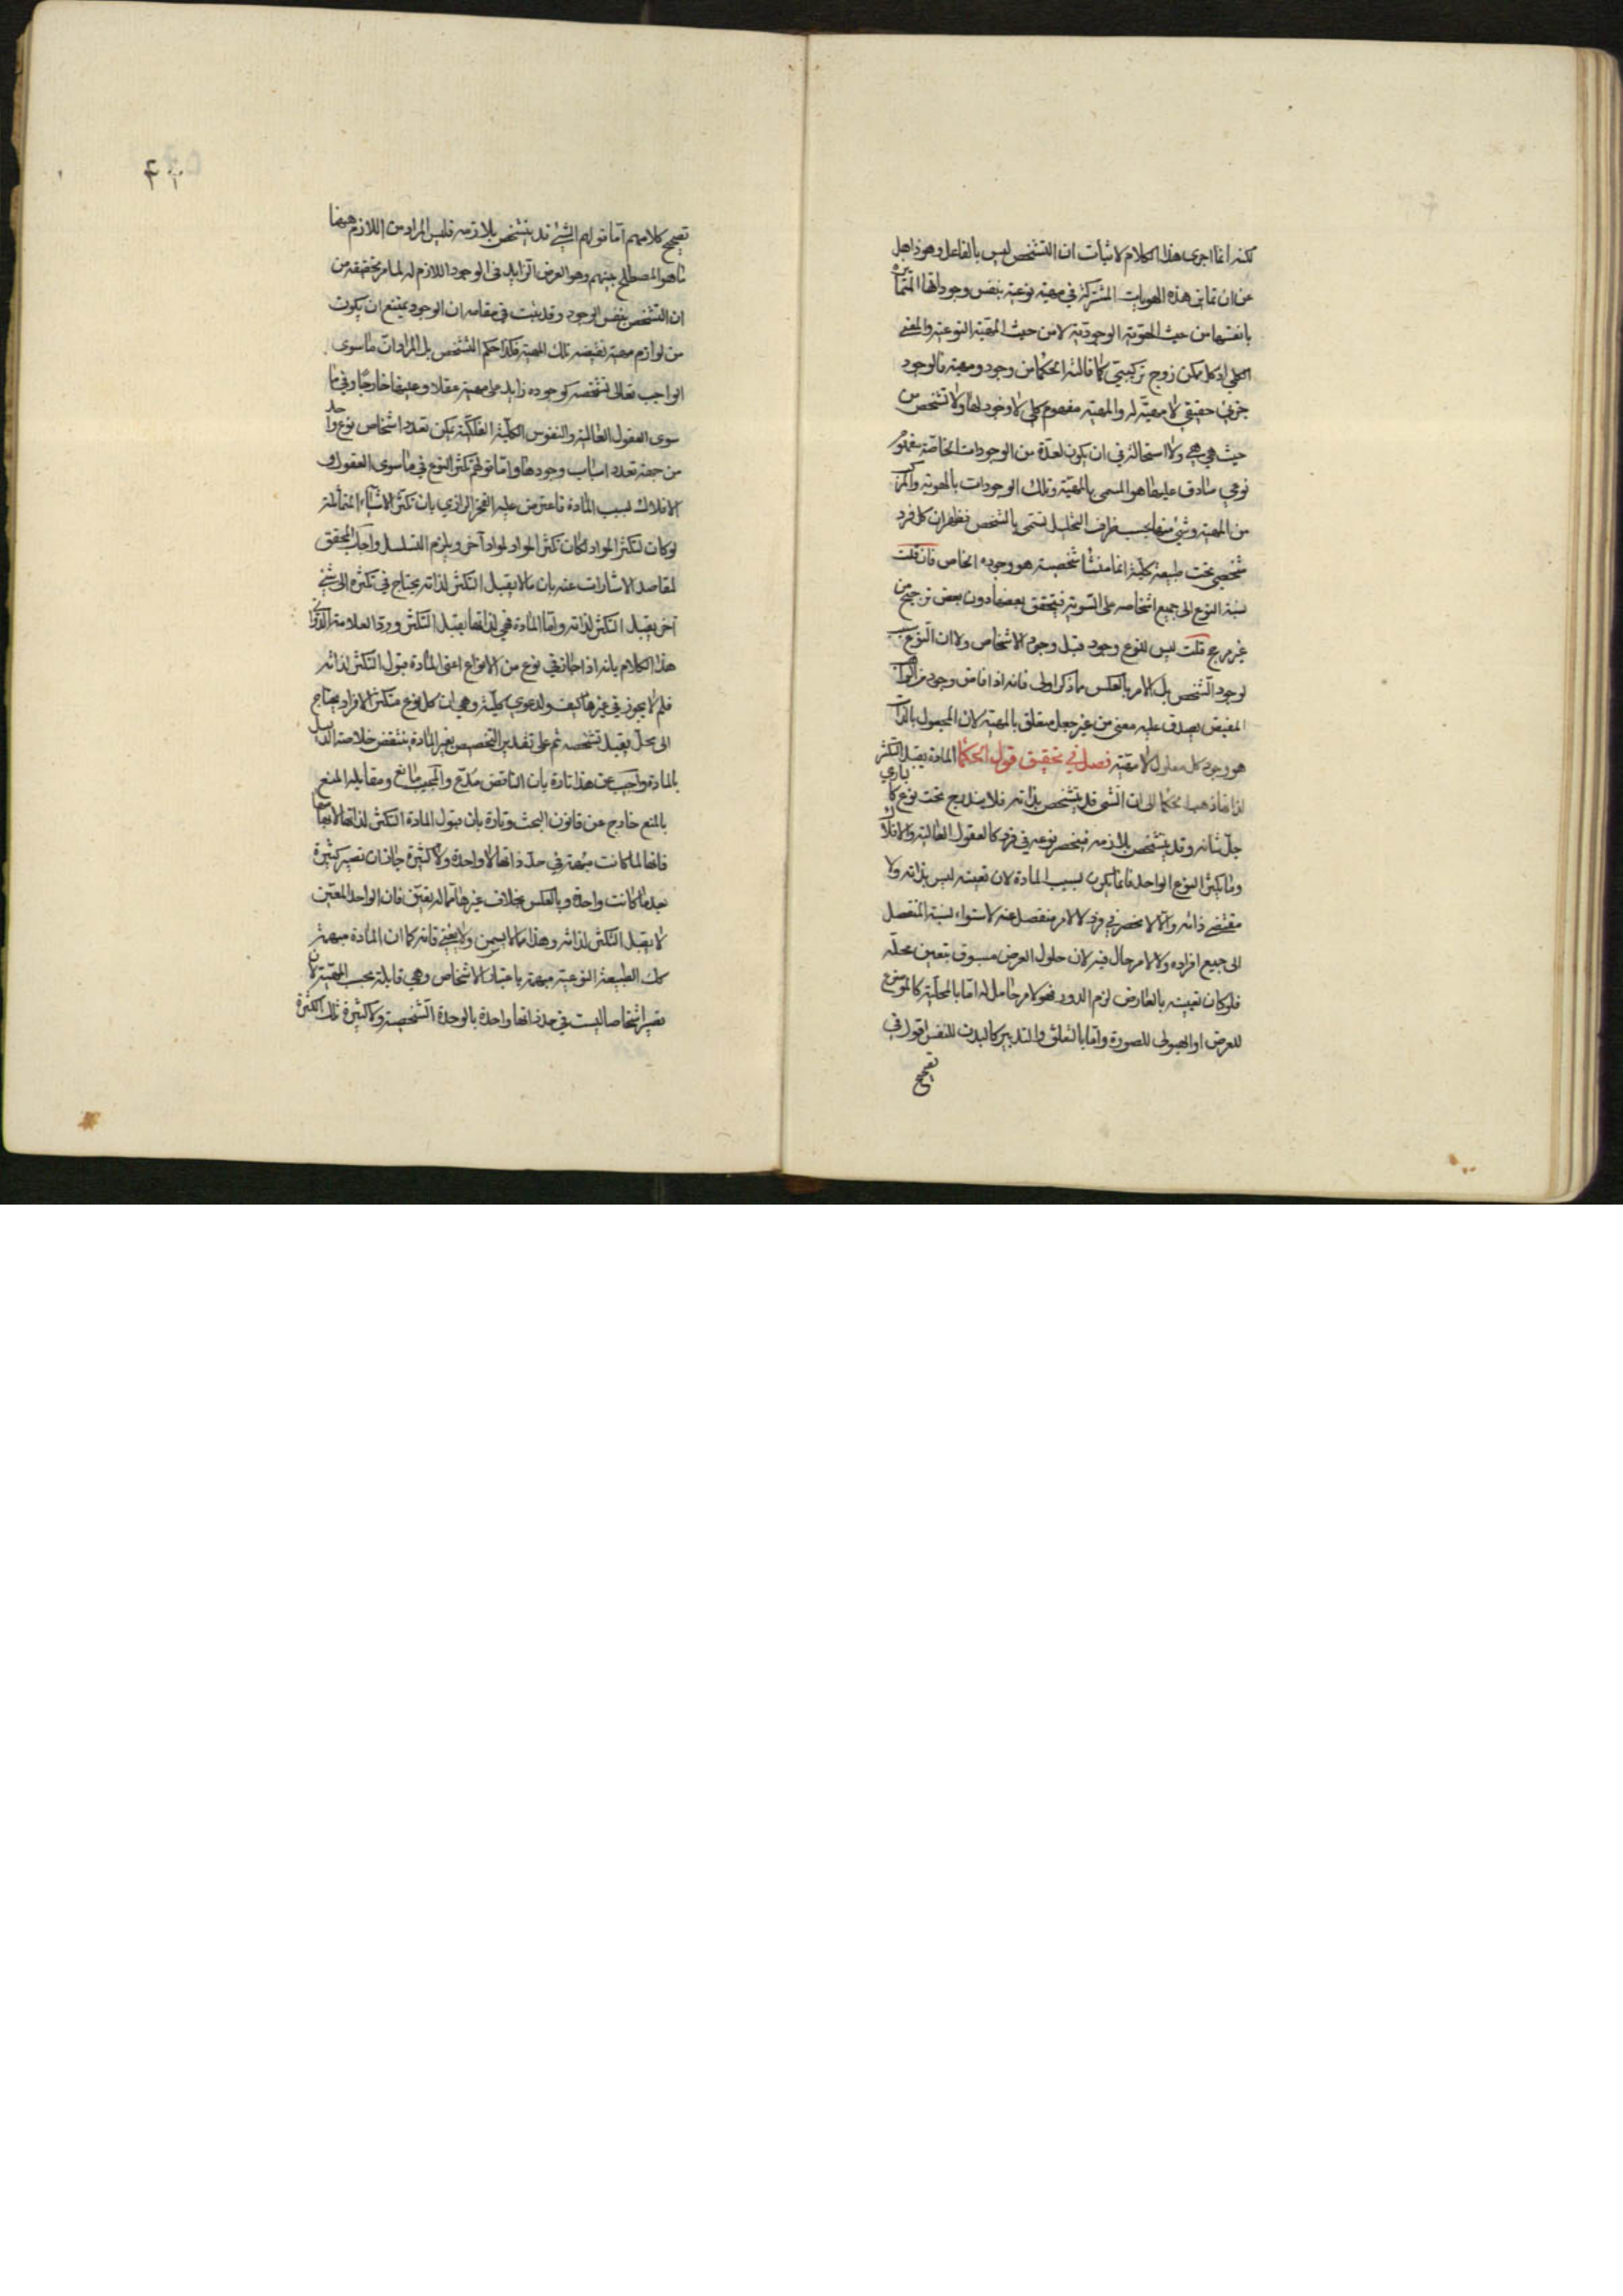 لكنه انما اجرى هذا الكلام لاثبات ان التشخص ليس بالفاعل وهو ذاهل
عن ان تمايز هذه الهويات المشتركة في مهية نوعية بنفس وجوداتها المتمايزة
بانفسها من حيث الهوية الوجودية لا من حيث المهية النوعية والمعنى
الكلي اذ كل ممكن زوج تركيبي كما قالته الحكما من وجود ومهية فالوجود
جزئي حقيقي لا مهية له والمهية مفهوم كلي لا وجود لها ولا تشخص من
حيث هي هي ولا استحالة في ان يكون لعدة من الوجودات الخاصة مفهوم
نوعي صادق عليها هو المسمى بالمهية وتلك الوجودات بالهوية والمركب
من المهية وشئ منها بحسب ظرف التحليل تسمى بالشخص فظهر ان كل فرد
شخصي تحت طبيعة كلية انما منشا شخصيته هو وجوده الخاص فان قلت
نسبة النوع الى جميع اشخاصه على السوية فيتحقق بعضها دون بعض ترجيح من
غير مرجح قلت ليس للنوع وجود قبل وجود الاشخاص ولا ان النوع
لوجود الشخص بل الامر بالعكس مما ذكر اولى فانه اذا فاض وجود من
المفيض يصدق عليه معنى من غير جعل متعلق بالمهية لان المجعول بالذات
هو وجود كل معلول لا مهيته فصل في تحقيق قول الحكما المادة يقبل التكثر
لذاتها ذهب الحكما الى ان الشئ قد يتشخص بذاته فلا يندرج تحت نوع كالباري
جل شانه وقد يتشخص بلازمه فينحصر نوعه في فرد كالعقول العالية والافلاك
وما يكثر النوع الواحد فانما يكون بسبب المادة لان تعينه ليس بذاته ولا
مقتضى ذاته والا لانحصر في فرد ولا لامر منفصل عنه لاستواء نسبة المنفصل
الى جميع افراده ولا لامر حال فيه لان حلول العرض مسبوق بتعين محله
فلو كان تعينه بالعارض لزم الدور فهو لامر حامل له اما بالمحلية كالموضوع
للعرض او الهيولى للصورة واما بالتعلق والتدبير كالبدن للنفس اقول في
تصحيح
تصحيح كلامهم اما قولهم الشئ قد يتشخص بلازمه فليس المراد من اللازم هيهنا
ما هو المصطلح بينهم وهو العرض الزايد في الوجود اللازم له لما مر تحقيقه من
ان التشخص بنفس الوجود وقد ثبت في مقامه ان الوجود يمتنع ان يكون
من لوازم مهية تقيضه تلك المهية فكذا حكم التشخص بل المراد ان ما سوى
الواجب تعالى تشخصه كوجوده زايد على مهيته عقلا وعينها خارجا وفي ما
سوى العقول العالية والنفوس الكلية الفلكية يمكن تعدد اشخاص نوع واحد
من جهة تعدد اسباب وجودها واما قولهم تكثر النوع في ما سوى العقول و
الافلاك بسبب المادة فاعترض عليه الفخر الرازي بان تكثر الاشياء المتماثلة
لو كان لتكثر المواد لكان تكثر المواد لمواد آخر ويلزم التسلسل واجاب المحقق
لمقاصد الاشارات عنه بان ما لا يقبل التكثر لذاته يحتاج في تكثره الى شئ
آخر يقبل التكثر لذاته واما المادة فهي لذاتها يقبل التكثر ورد العلامة الدواني
هذا الكلام بانه اذا جاز في نوع من الانواع اعني المادة قبول التكثر لذاته
فلم لا يجوز في غيرها كيف والدعوى كلية وهي ان كل نوع متكثر الافراد يحتاج
الى محل يقبل تشخصه ثم على تقدير التخصيص بغير المادة ينتقض خلاصة الدليل
بالمادة واجيب عن هذا تارة بان الناقض مدع والمجيب مانع ومقابلة المنع
بالمنع خارج عن قانون البحث وتارة بان قبول المادة التكثر لذاتها لابهامها
فانها لما كانت مبهمة في حد ذاتها لا واحدة ولا كثيرة جاز ان تصير كثيرة
بعد ما كانت واحدة وبالعكس بخلاف غيرها مما له تعين فان الواحد المعين
لا يقبل التكثر لذاته وهذا مما لا يسمن ولا يغني فانه كما ان المادة مبهمة
كك الطبيعة النوعية مبهمة باعتبار الاشخاص وهي قابلة بحسب المهية لان
تصير اشخاصا ليست في حد ذاتها واحدة بالوحدة الشخصية ولا كثيرة تلك الكثرة